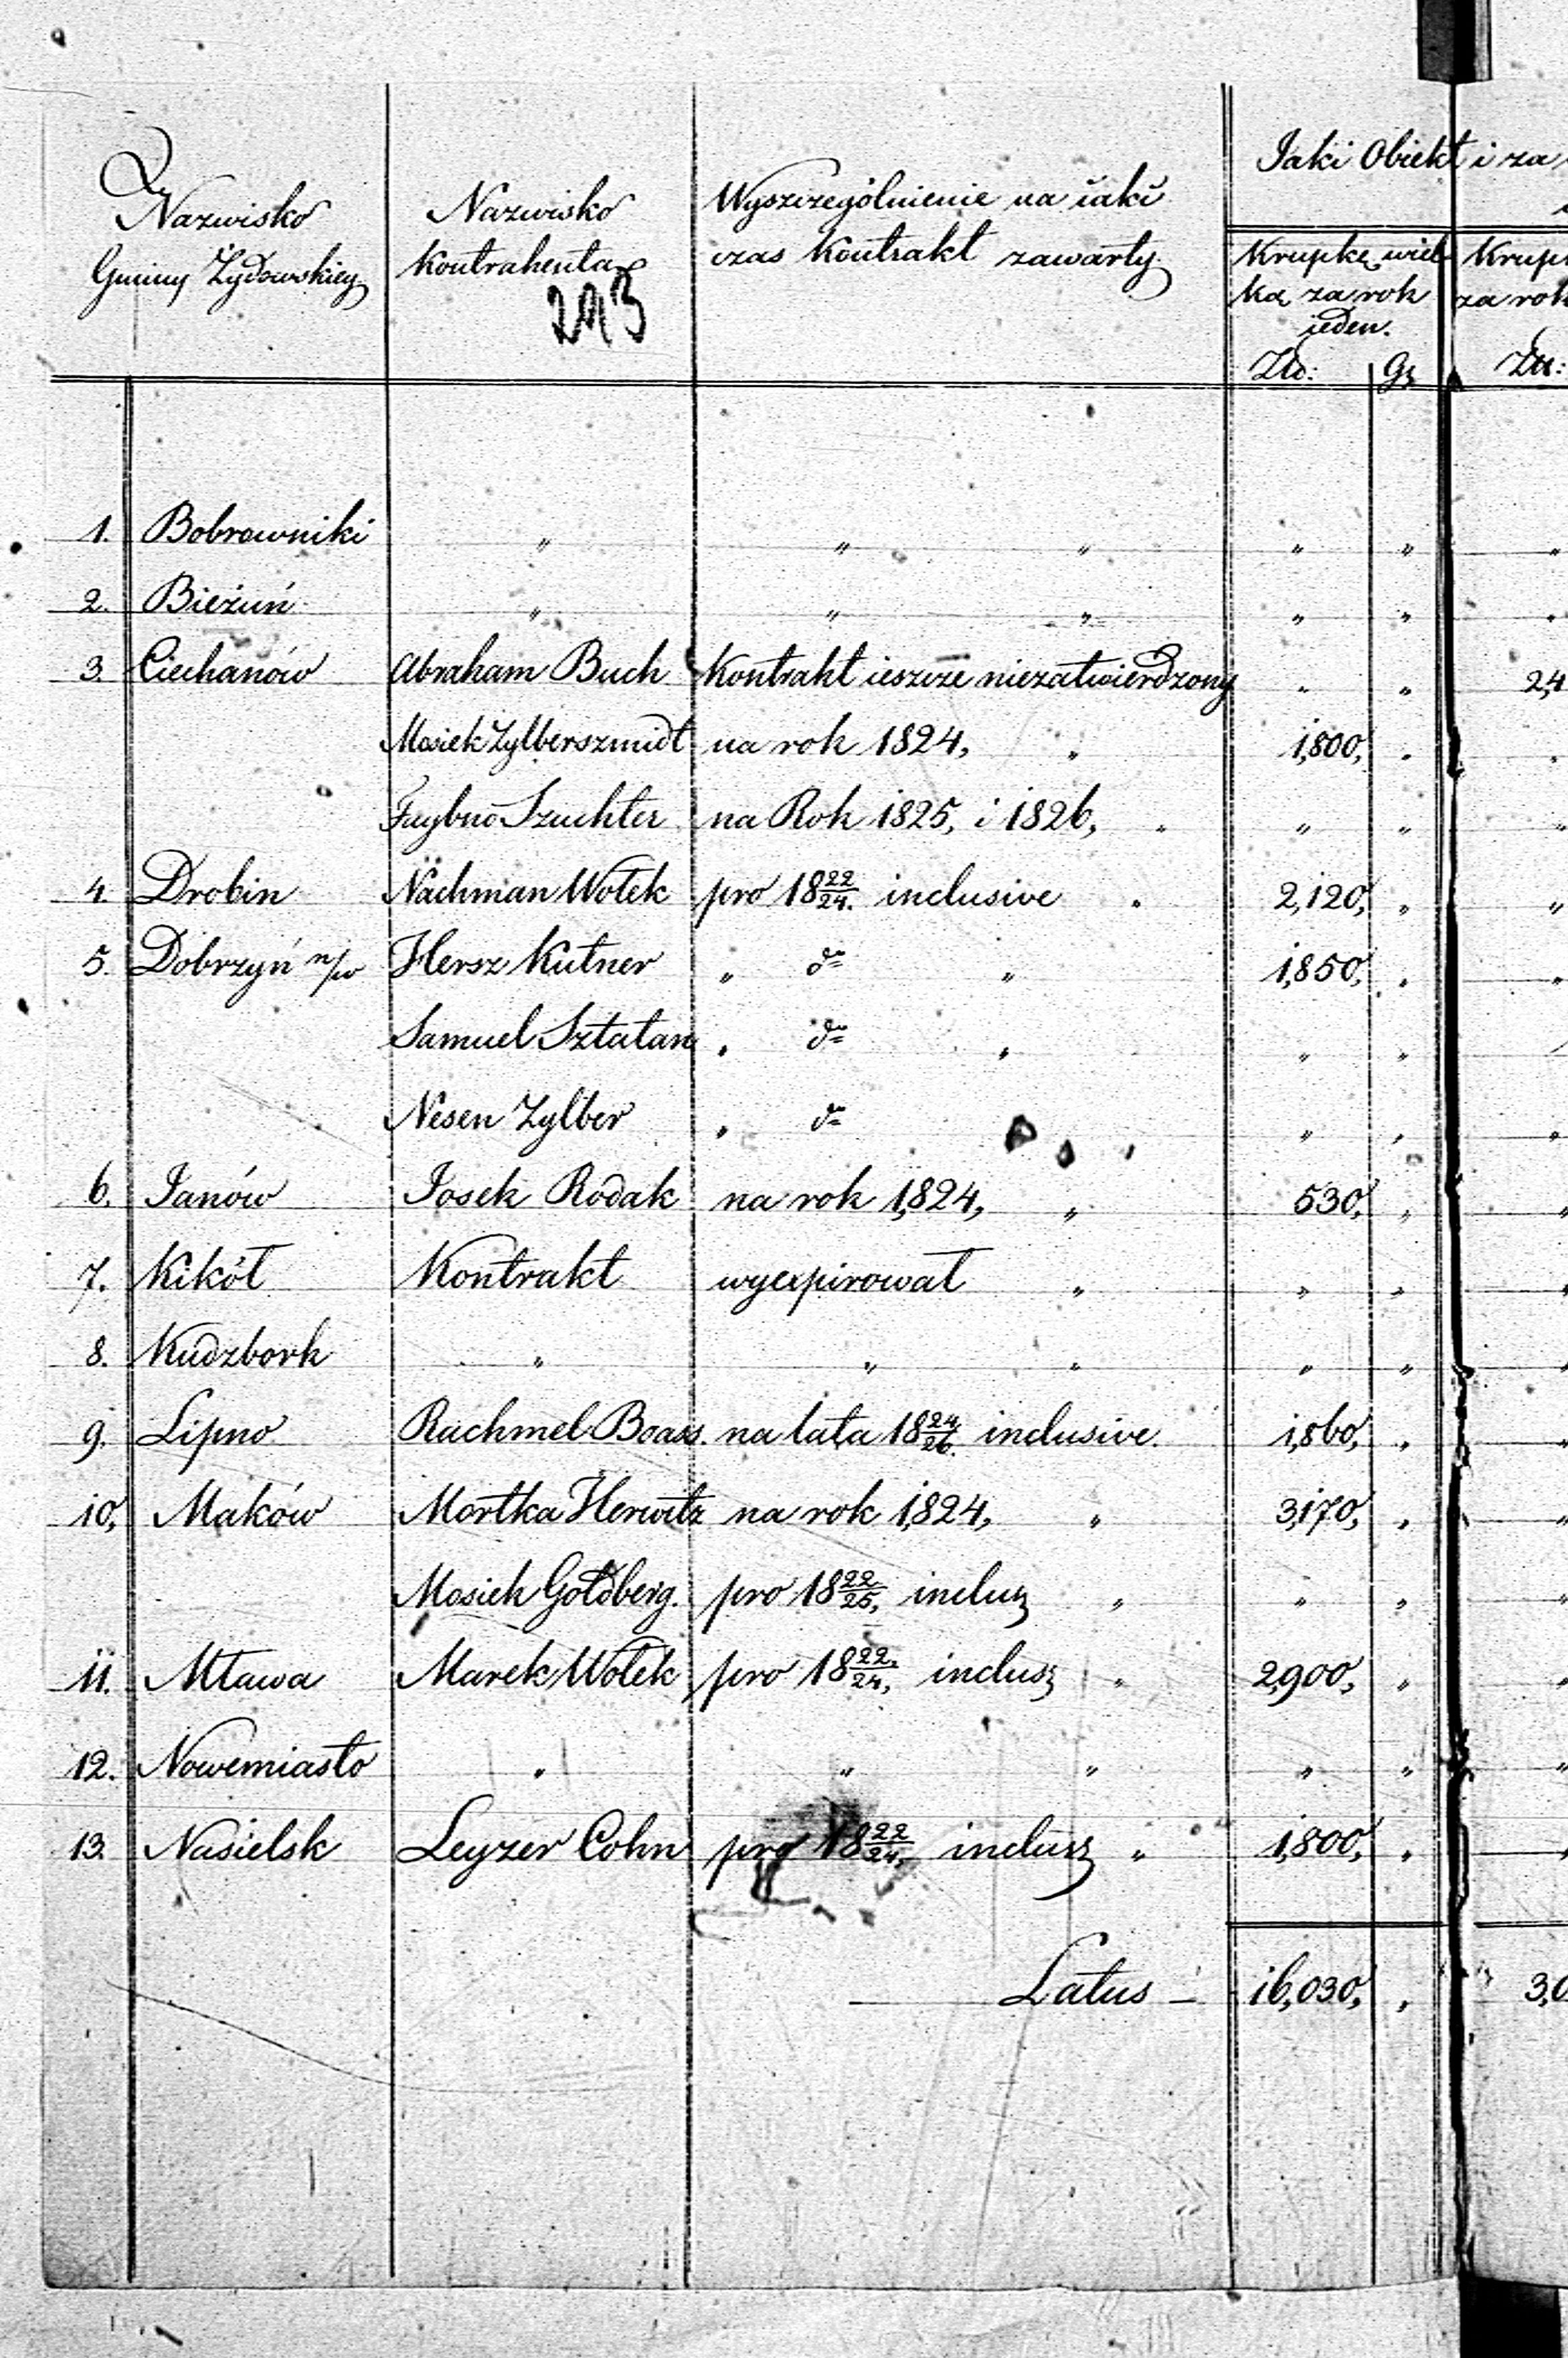 Nazwisko Gminy Żydowskiey
Nazwisko Kontrahenta
293
Wyszczególnienie na iaki czas Kontrakt zawarty
Jaki Obiekt i za
Krupkę wielką za rok ieden.
Krup za rok
Zło: Gr Zło:
1. Bobrowniki " " " " " "
2. Bieżuń " " " " " "
3. Ciechanów Abraham Buch Kontrakt ieszcze niezatwierdzony " " 2,4
Mosiek Zylberszmidt na rok 1824, " 1,800, "
Faybus Szuchter na Rok 1825, i 1826, " " " "
4. Drobin Nachman Wołek pro 18 22/24. inclusive " 2,120, " "
5. Dobrzyń n/w Hersz Kutner " do " 1,850, " "
Samuel Sztatan " do " " "
Nesen Zylber " do " " "
6. Janów Josek Rodak na rok 1,824, " 530, " "
7. Kikół Kontrakt wyexpirował " " " "
8. Kudzbork " " " " " "
9. Lipno Rachmel Boass. na lata 18 24/26. inclusive. 1,860, " "
10, Maków Mortka Herwitz na rok 1,824, " 3,170, " "
Mosiek Gołdberg. pro 18 22/25, inclus " " " "
11. Mława Marek Wołek pro 18 22/24, inclus " 2,900, " "
12. Nowemiasto " " " " " "
13. Nasielsk Leyzer Cohn pro 18 22/24, inclus " 1,800, " "
Latus — 16,030, " 3,0